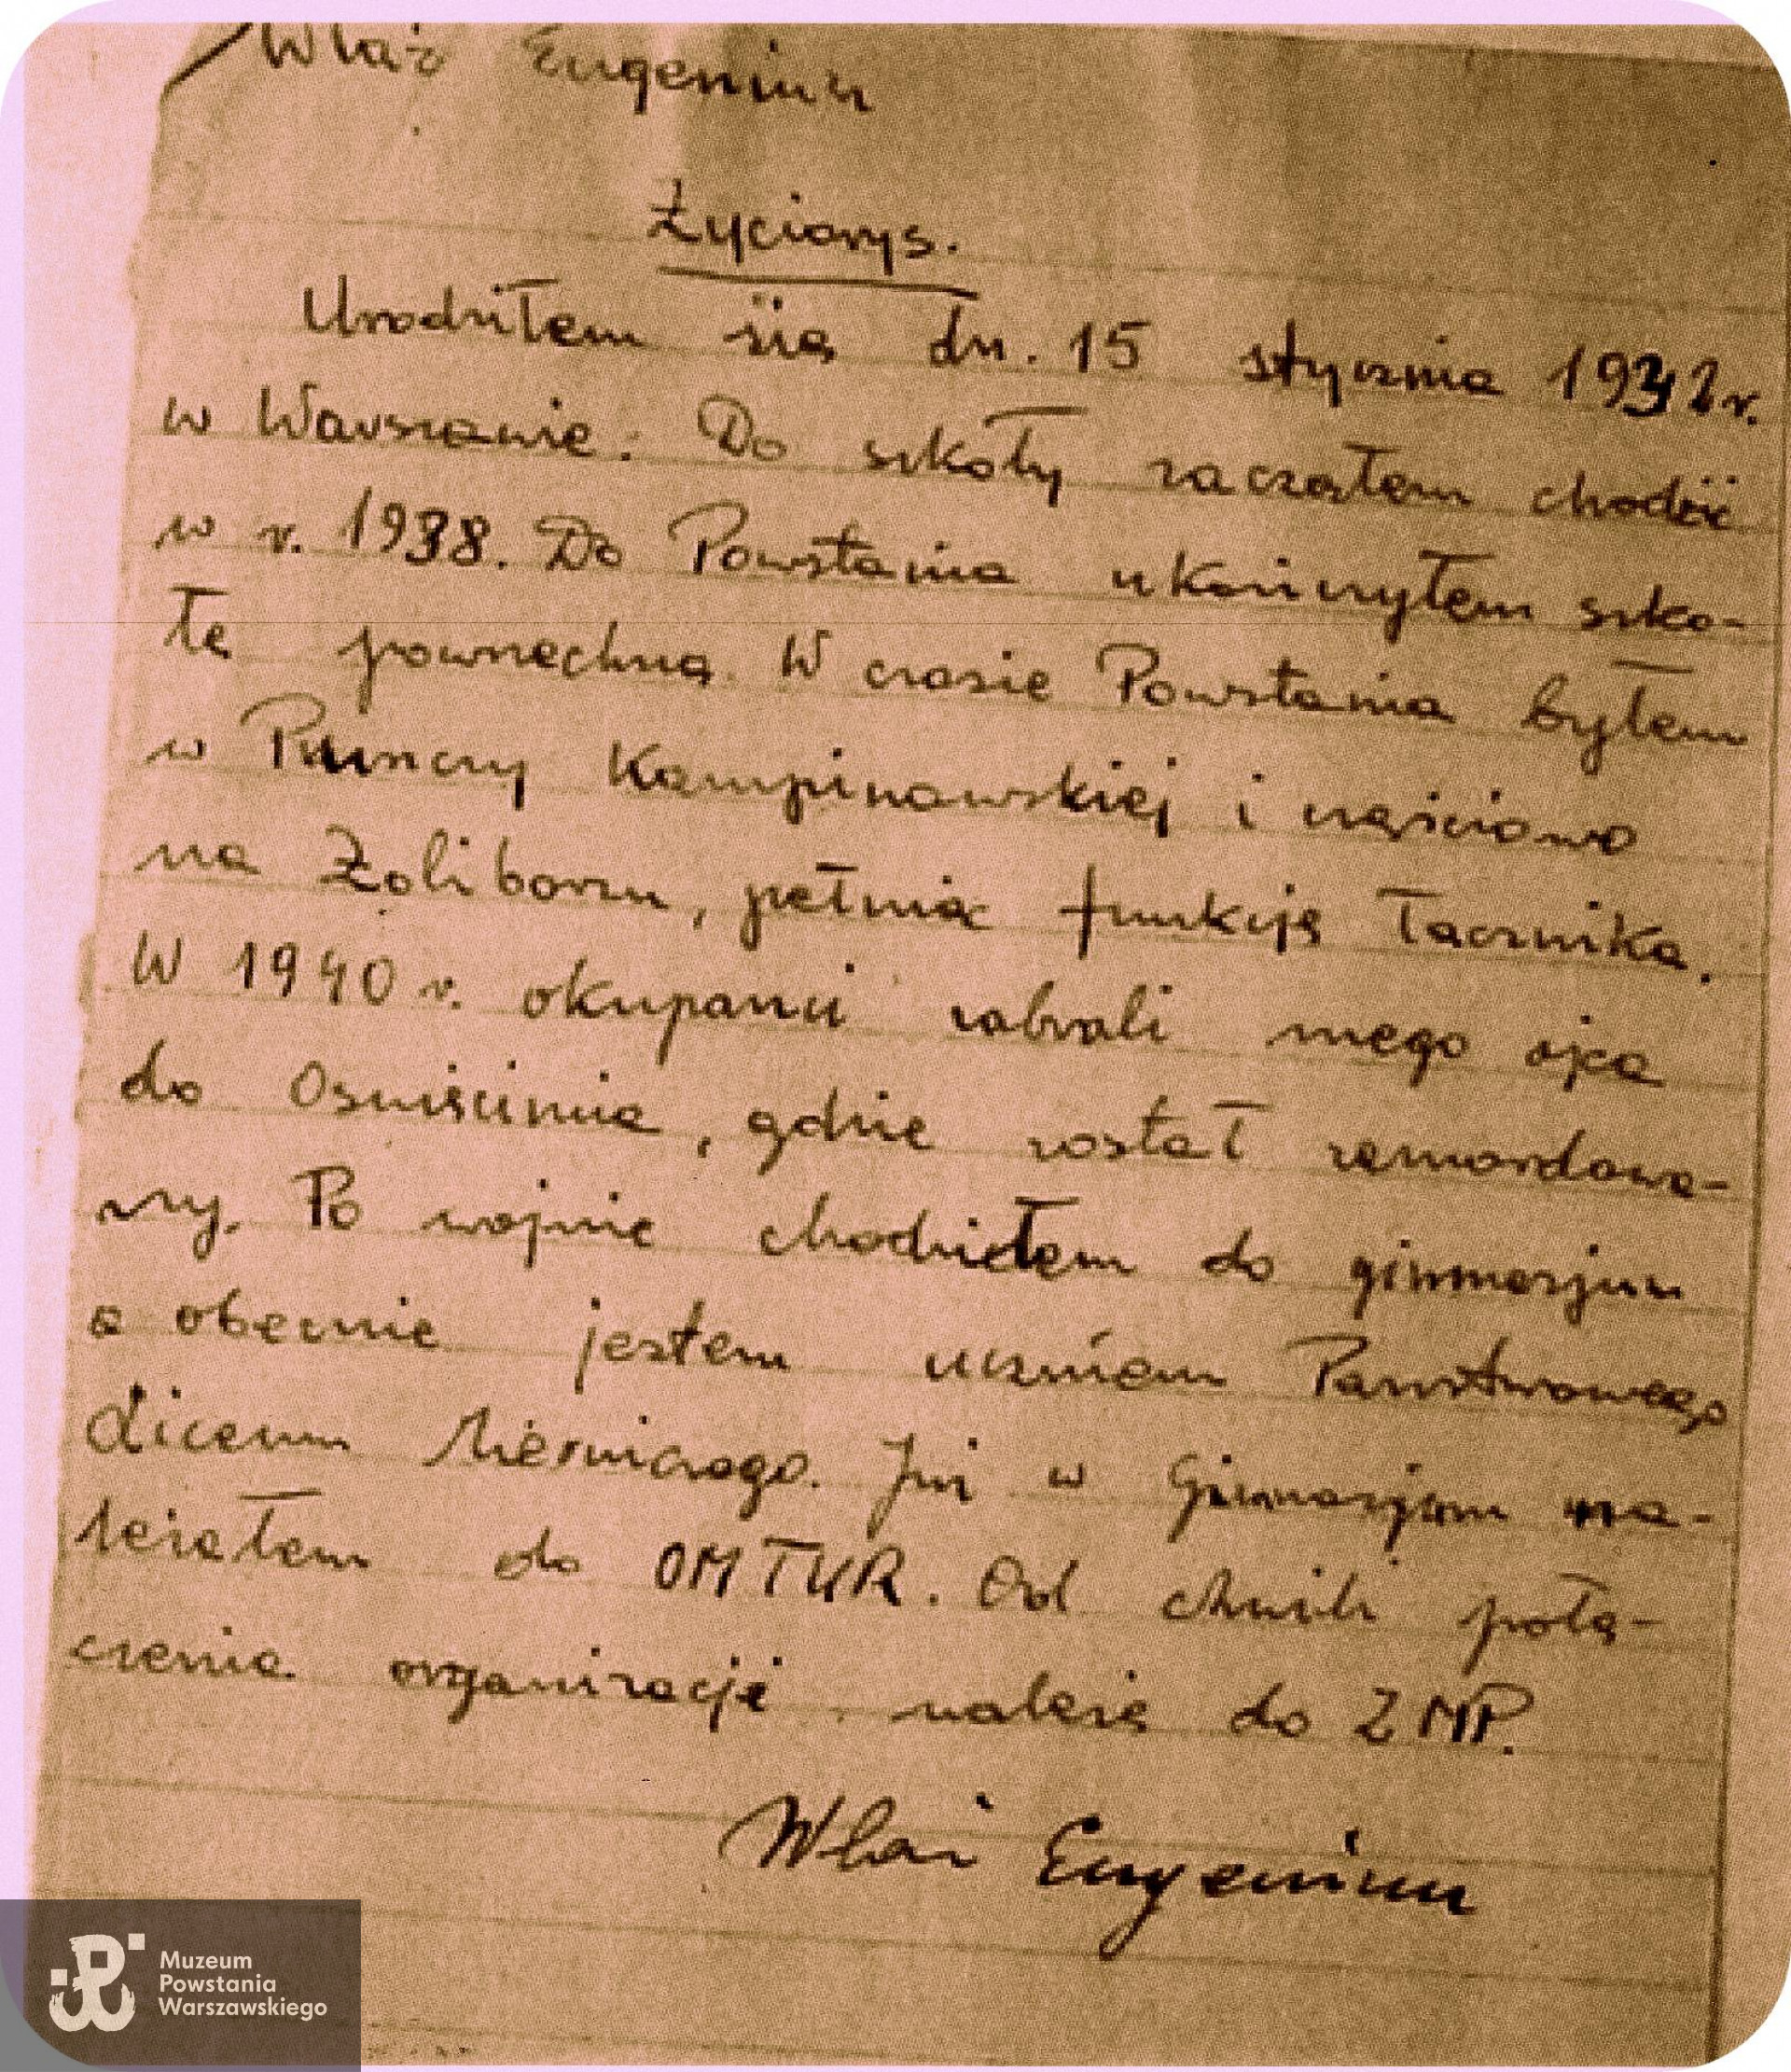 Właź Eugeniusz
Życiorys.
Urodziłem się dn. 15 stycznia 1932 r.
w Warszawie. Do szkoły zacząłem chodzić
w r. 1938. Do Powstania ukończyłem szko-
łę powszechną. W czasie Powstania byłem
w Puszczy Kampinowskiej i częściowo
na Żoliborzu, pełniąc funkcję łącznika.
W 1940 r. okupanci zabrali mego ojca
do Oświęcimia, gdzie został zamordowa-
ny. Po wojnie chodziłem do gimnazjum
a obecnie jestem uczniem Państwowego
Liceum Mierniczego. Już w Gimnazjum na-
leżałem do OMTUR. Od chwili połą-
czenia organizacji należę do ZMP.
Właź Eugeniusz
Muzeum
Powstania
Warszawskiego